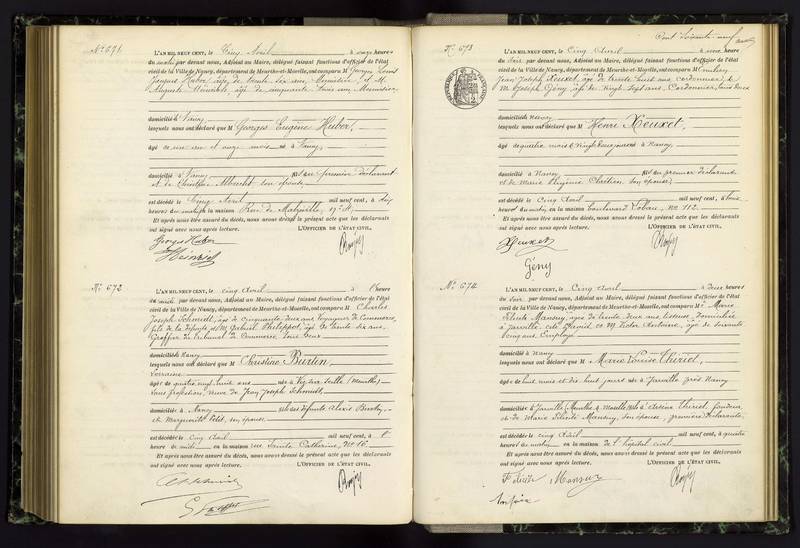 N° 671
L'AN MIL NEUF CENT, le Cinq Avril à onze heures
du matin par devant nous, Adjoint au Maire, délégué faisant fonctions d'officier de l'état
civil de la Ville de Nancy, département de Meurthe-et-Moselle, ont comparu M Georges Louis
Jacques Huber, âgé de trente six ans, Menuisier, et M.
Auguste âgé de cinquante trois ans Menuisier,
domiciliés à Nancy
lesquels nous ont déclaré que M Georges Eugène Huber,
âgé de un an et onze mois né à Nancy,
domicilié à Nancy fils du premier déclarant
et de Christine Albrecht son épouse
est décédé le Cinq Avril mil neuf cent, à dix
heures du matin en la maison Rue de Malzéville, 17
Et après nous être assuré du décès, nous avons dressé le présent acte que les déclarants
ont signé avec nous après lecture. L'OFFICIER DE L'ÉTAT CIVIL,
Georges Huber
N° 672
L'AN MIL NEUF CENT, le cinq Avril à heures
du midi par devant nous, Adjoint au Maire, délégué faisant fonctions d'officier de l'état
civil de la Ville de Nancy, département de Meurthe-et-Moselle, ont comparu M Charles
Joseph Schmidt, âgé de cinquante deux ans Voyageur de Commerce,
fils de la défunte et M Gabriel Philippot, âgé de trente six ans,
Greffier du Tribunal de Commerce tous deux
domiciliés à Nancy
lesquels nous ont déclaré que M Christine Burtin
âgée de quatre vingt huit ans née à Vic sur Seille (Meurthe)
sans profession, veuve de Jean Joseph Schmidt,
domiciliée à Nancy fille des défunts Alexis Burtin
et Marguerite Petit, son épouse
est décédée le cinq Avril mil neuf cent, à
heure de midi en la maison rue Sainte Catherine, N° 16
Et après nous être assuré du décès, nous avons dressé le présent acte que les déclarants
ont signé avec nous après lecture. L'OFFICIER DE L'ÉTAT CIVIL,
Cent soixante-neuf
N° 673
L'AN MIL NEUF CENT, le Cinq Avril à une heure
du soir par devant nous, Adjoint au Maire, délégué faisant fonctions d'officier de l'état
civil de la Ville de Nancy, département de Meurthe-et-Moselle, ont comparu M Emilien
Jean Joseph Xeuxet, âgé de trente huit ans, cordonnier, &
M Joseph Gény, âgé de vingt sept ans, Cordonnier, tous deux
domiciliés à Nancy
lesquels nous ont déclaré que M Henri Xeuxet,
âgé de quatre mois & vingt deux jours né à Nancy
domicilié à Nancy fils du premier déclarant
et de Marie Eugénie Chrétien son épouse
est décédé le Cinq Avril mil neuf cent, à
heures du matin en la maison boulevard Lobau, no 112
Et après nous être assuré du décès, nous avons dressé le présent acte que les déclarants
ont signé avec nous après lecture. L'OFFICIER DE L'ÉTAT CIVIL,
Xeuxet
Gény
N° 674
L'AN MIL NEUF CENT, le Cinq Avril à deux heures
du soir par devant nous, Adjoint au Maire, délégué faisant fonctions d'officier de l'état
civil de la Ville de Nancy, département de Meurthe-et-Moselle, ont comparu M Marie
Félicité Mansuy, âgée de trente deux ans, domiciliée
à Jarville et M Victor âgé de soixante
cinq ans, Employé
domicilié à Nancy
lesquels nous ont déclaré que M Marie Louise Thiriet,
âgée de huit mois et dix huit jours née à Jarville près Nancy
domiciliée à Jarville (Meurthe & Moselle) fille d'Arsène Thiriet, fondeur
et de Marie Félicité Mansuy, son épouse, première déclarante
est décédée le cinq Avril mil neuf cent, à quatre
heures du matin en la maison de l'hôpital civil
Et après nous être assuré du décès, nous avons dressé le présent acte que les déclarants
ont signé avec nous après lecture. L'OFFICIER DE L'ÉTAT CIVIL,
Mansuy